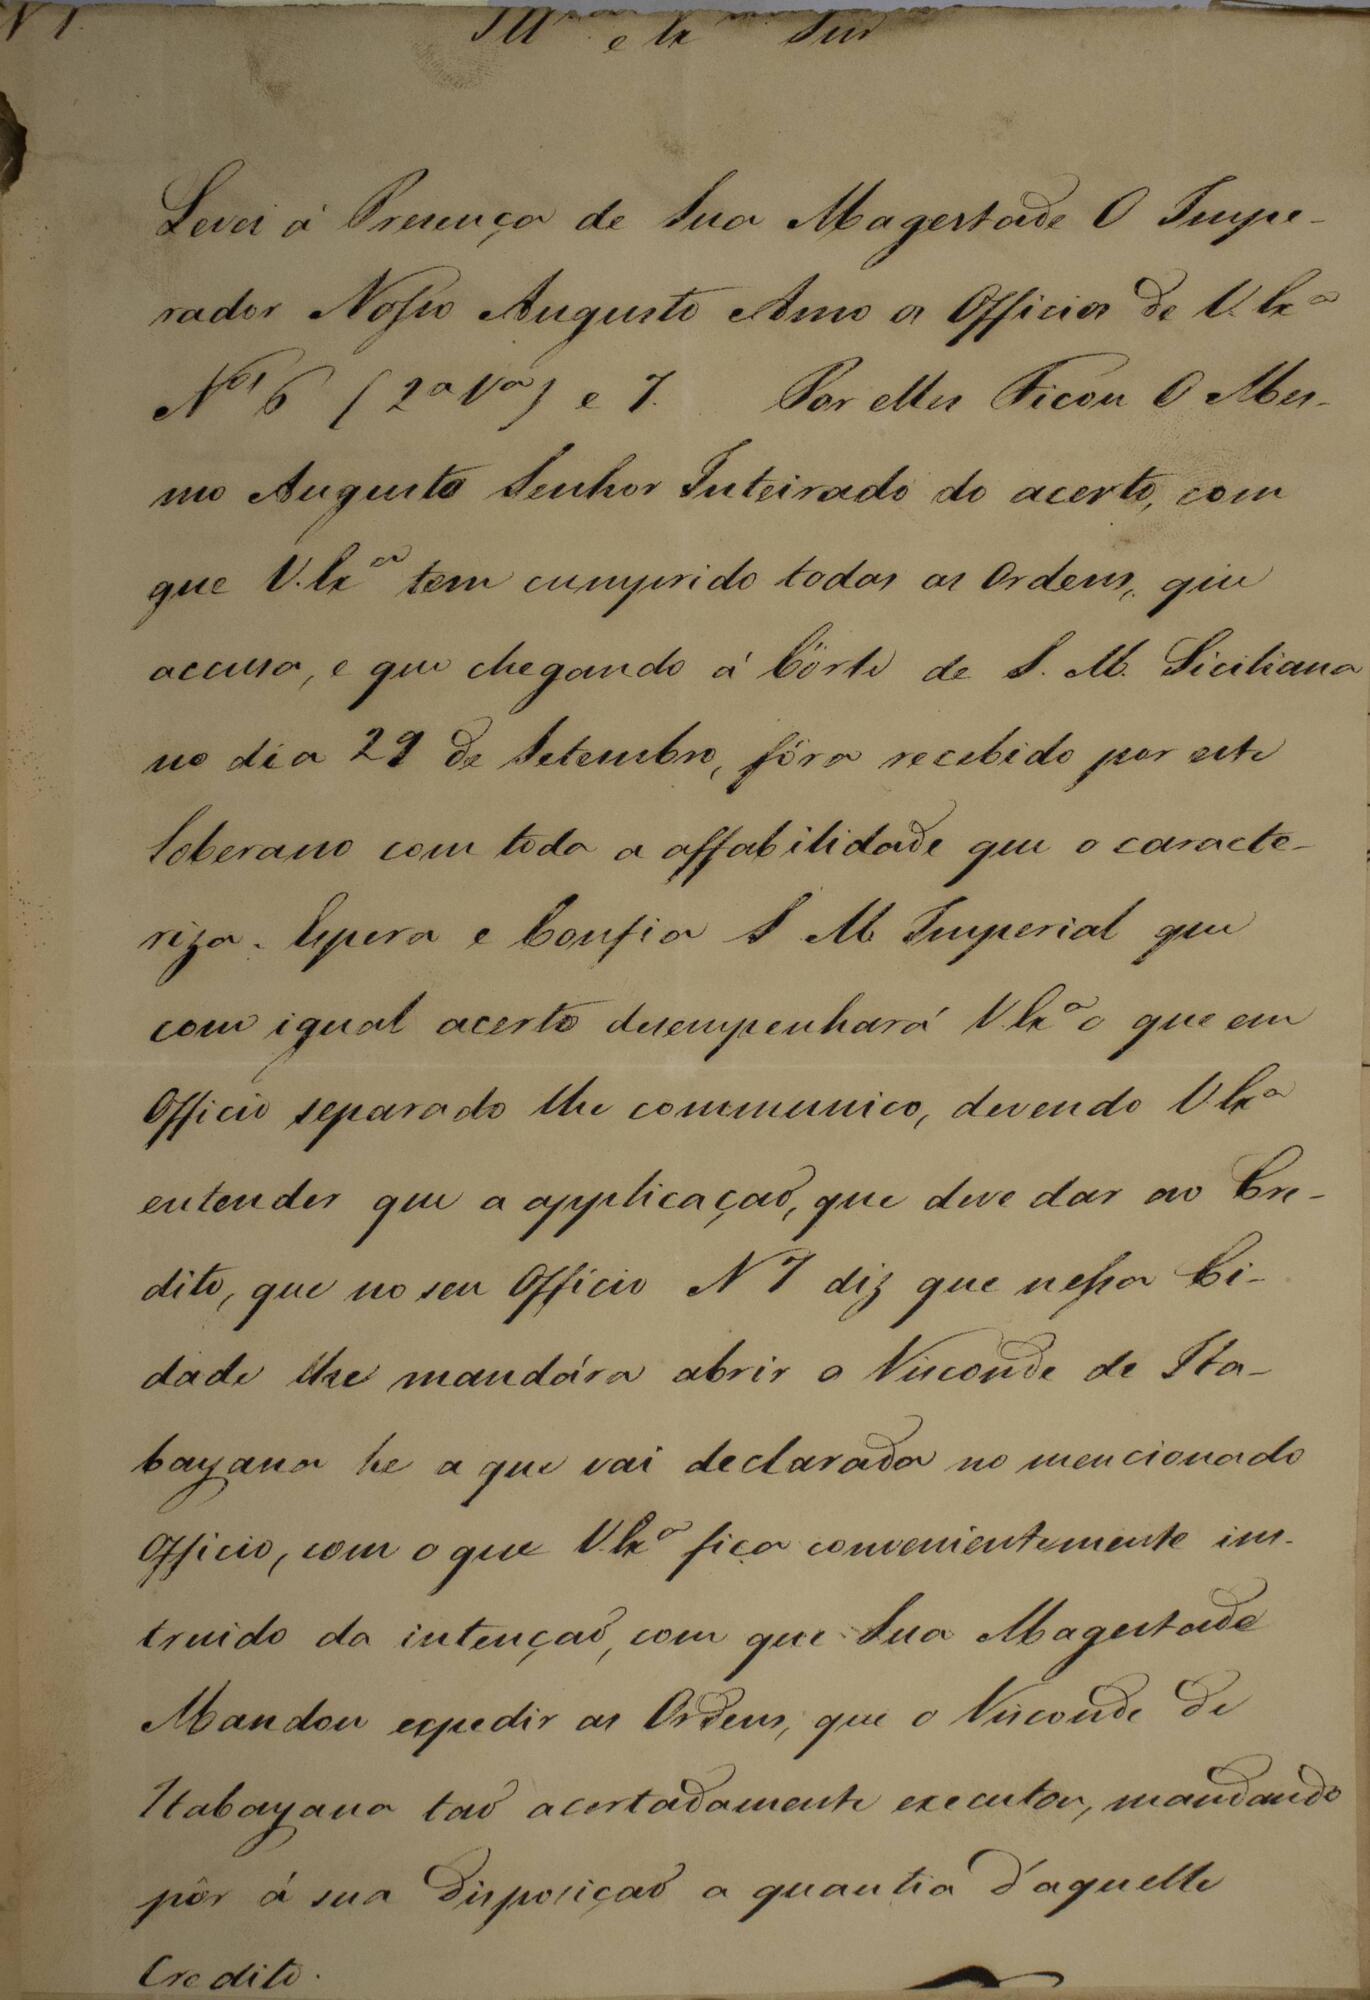 N 1.
Illmo e Ex Snr
Levei á Presença de Sua Magestade O Impe-
rador Nosso Augusto Amo os Officios de V. Exa
Nos 6 (2a Va) e 7. Por elles Ficou O Mes-
mo Augusto Senhor Inteirado do acerto, com
que V. Exa tem cumprido todas as Ordens, que
accusa, e que chegando á Côrte de S. M. Siciliana
no dia 29 de Setembro, fôra recebido por este
Soberano com toda a affabilidade que o caracte-
riza. Espera e Confia S M Imperial que
com igual acerto desempenhará V. Exa o que em
Officio separado lhe communico, devendo V. Exa
entender que a applicaçaõ, que deve dar ao Cre-
dito, que no seu Officio N 7 diz que nessa Ci-
dade lhe mandára abrir o Visconde de Ita-
bayana he a que vai declarada no mencionado
Officio, com o que V. Exa fica convenientemente ins-
truido da intençaõ, com que Sua Magestade
Mandou expedir as Ordens, que o Visconde de
Itabayana taõ acertadamente executou, mandando
pôr á sua disposiçaõ a quantia d'aquelle
Credito.